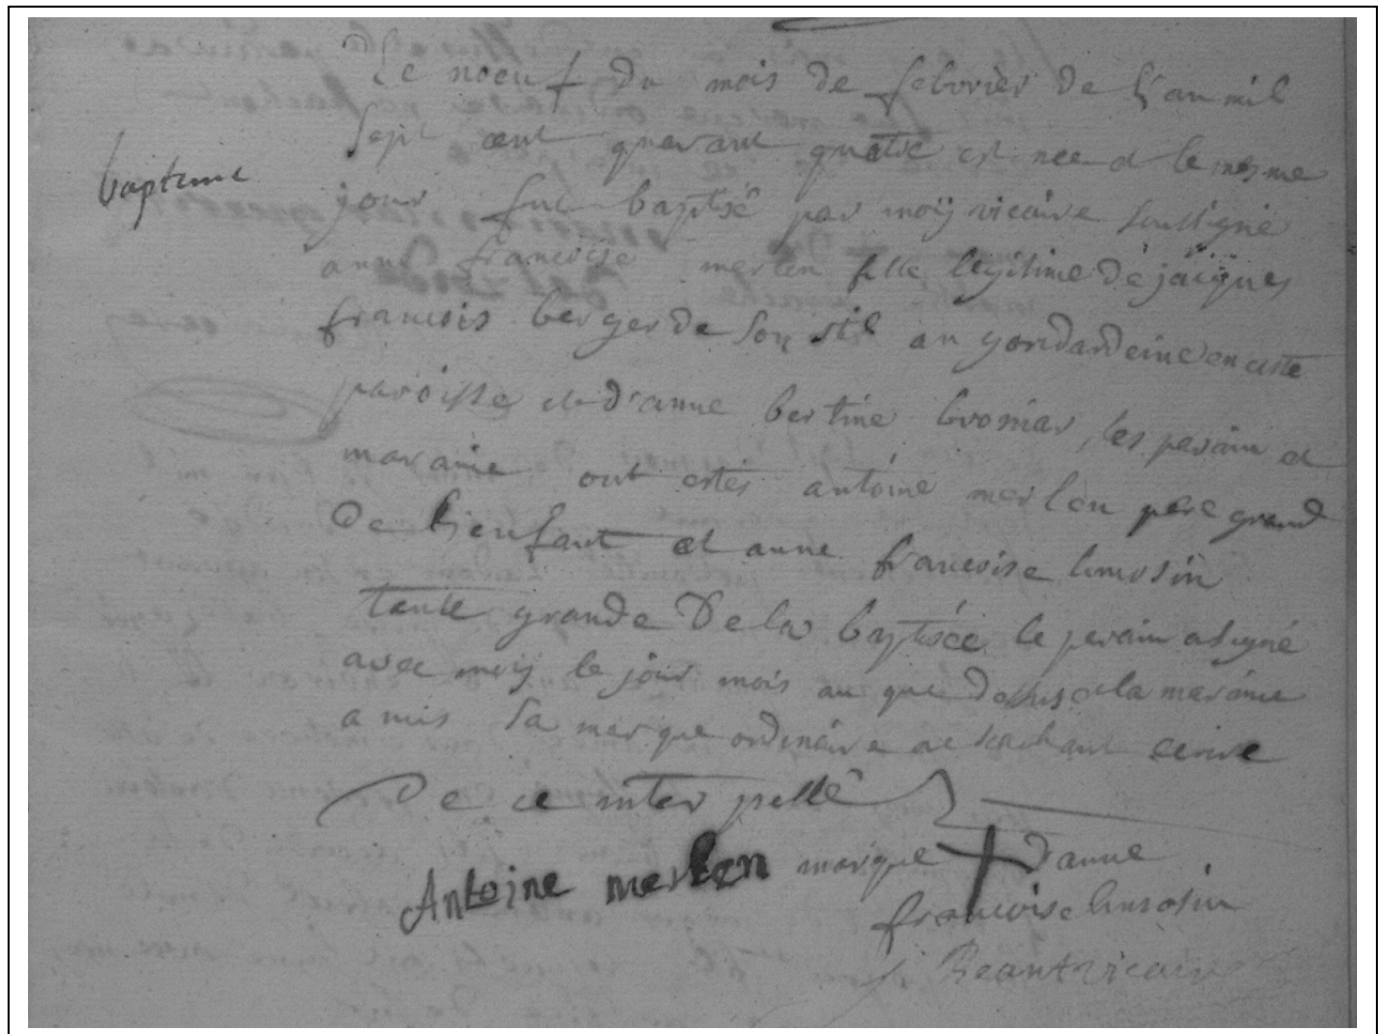 Le noeuf du mois de febvrier de L'an mil
bapteme
sept cent quarant quatre est nee et le mesme
jour fut baptisé par moÿ vicaire soussigné
anne francoise merlen fille legitime de jacques
francois berger de son stil au gondardeine en cette
paroisse et d'anne bertine brosiar, les parain et
maraine ont estés antoine merlen pere grand
De L'enfant et anne francoise limosin
tante grande De la baptisée le parain a signé
avec moy le jour mois an que dessus et la maraine
a mis sa marque ordinaire ne sachant ecrire
De ce interpellé
Antoine merlen marque d'anne
francoise limosin
Beant vicaire